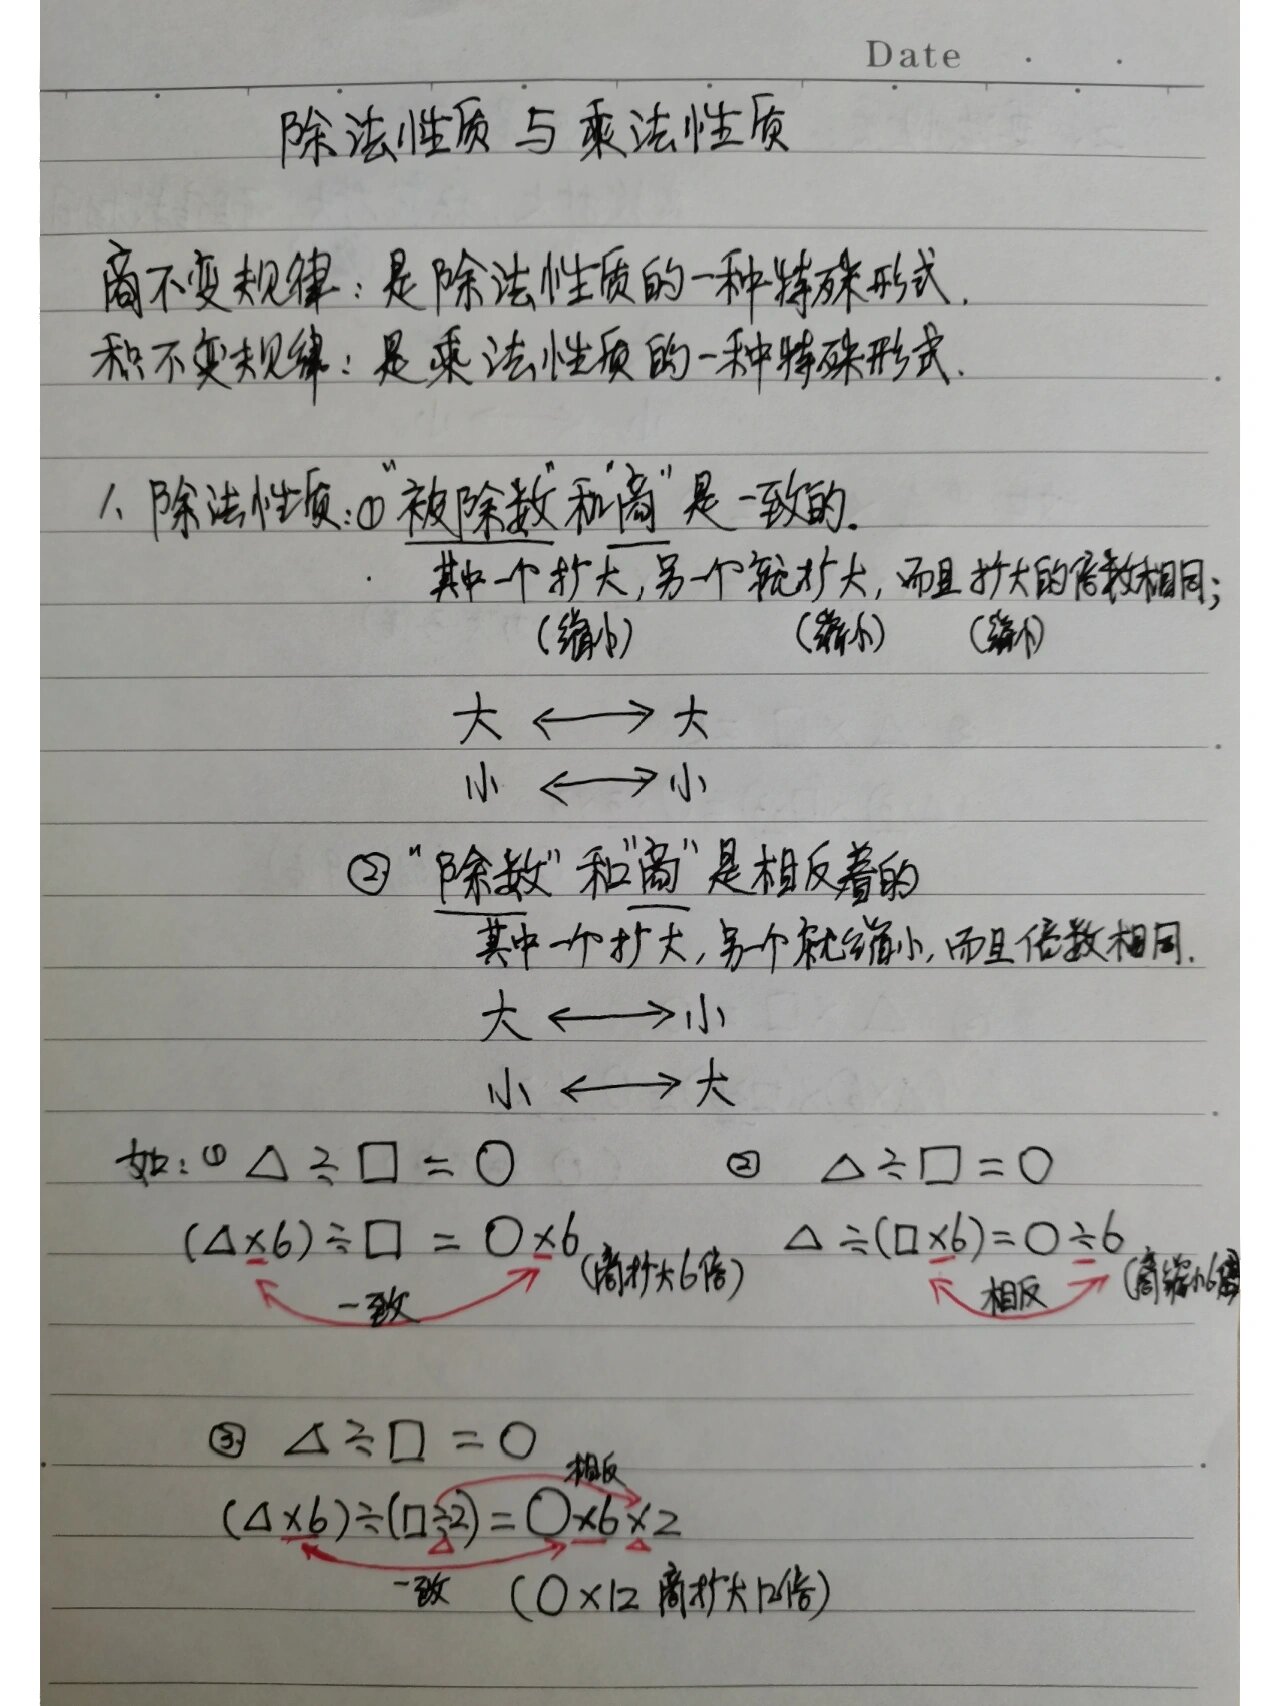 Date
除法性质与乘法性质
商不变规律：是除法性质的一种特殊形式.
积不变规律：是乘法性质的一种特殊形式.
1、除法性质：①“被除数”和“商”是一致的.
其中一个扩大，另一个就扩大，而且扩大的倍数相同；
(缩小) (缩小) (缩小)
大 ⟷ 大
小 ⟷ 小
② “除数”和“商”是相反着的
其中一个扩大，另一个就缩小，而且倍数相同.
大 ⟷ 小
小 ⟷ 大
如：① △÷□=○ ② △÷□=○
(△×6)÷□=○×6 (商扩大6倍) △÷(□×6)=○÷6 (商缩小6倍)
一致 相反
③ △÷□=○
相反
(△×6)÷(□÷2)=○×6×2
一致 (○×12 商扩大12倍)